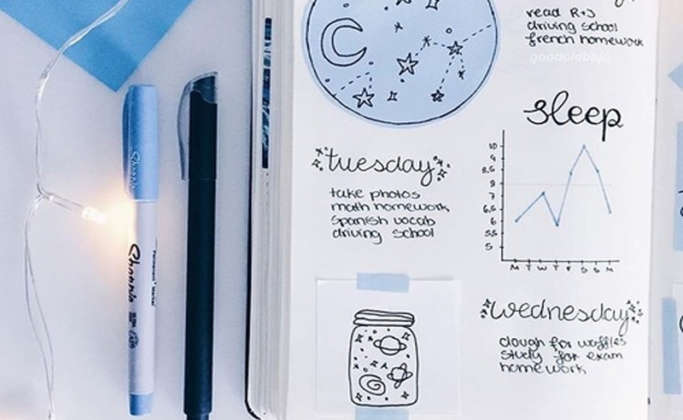 read R+J
driving school
french homework
Sharpie
tuesday
take photos
math homework
Spanish vocab
driving school
Sleep
10
9
8.5
8
7
6.5
6
5.5
5
M T W T F S S M
wednesday
dough for waffles
study for exam
homework
Sharpie